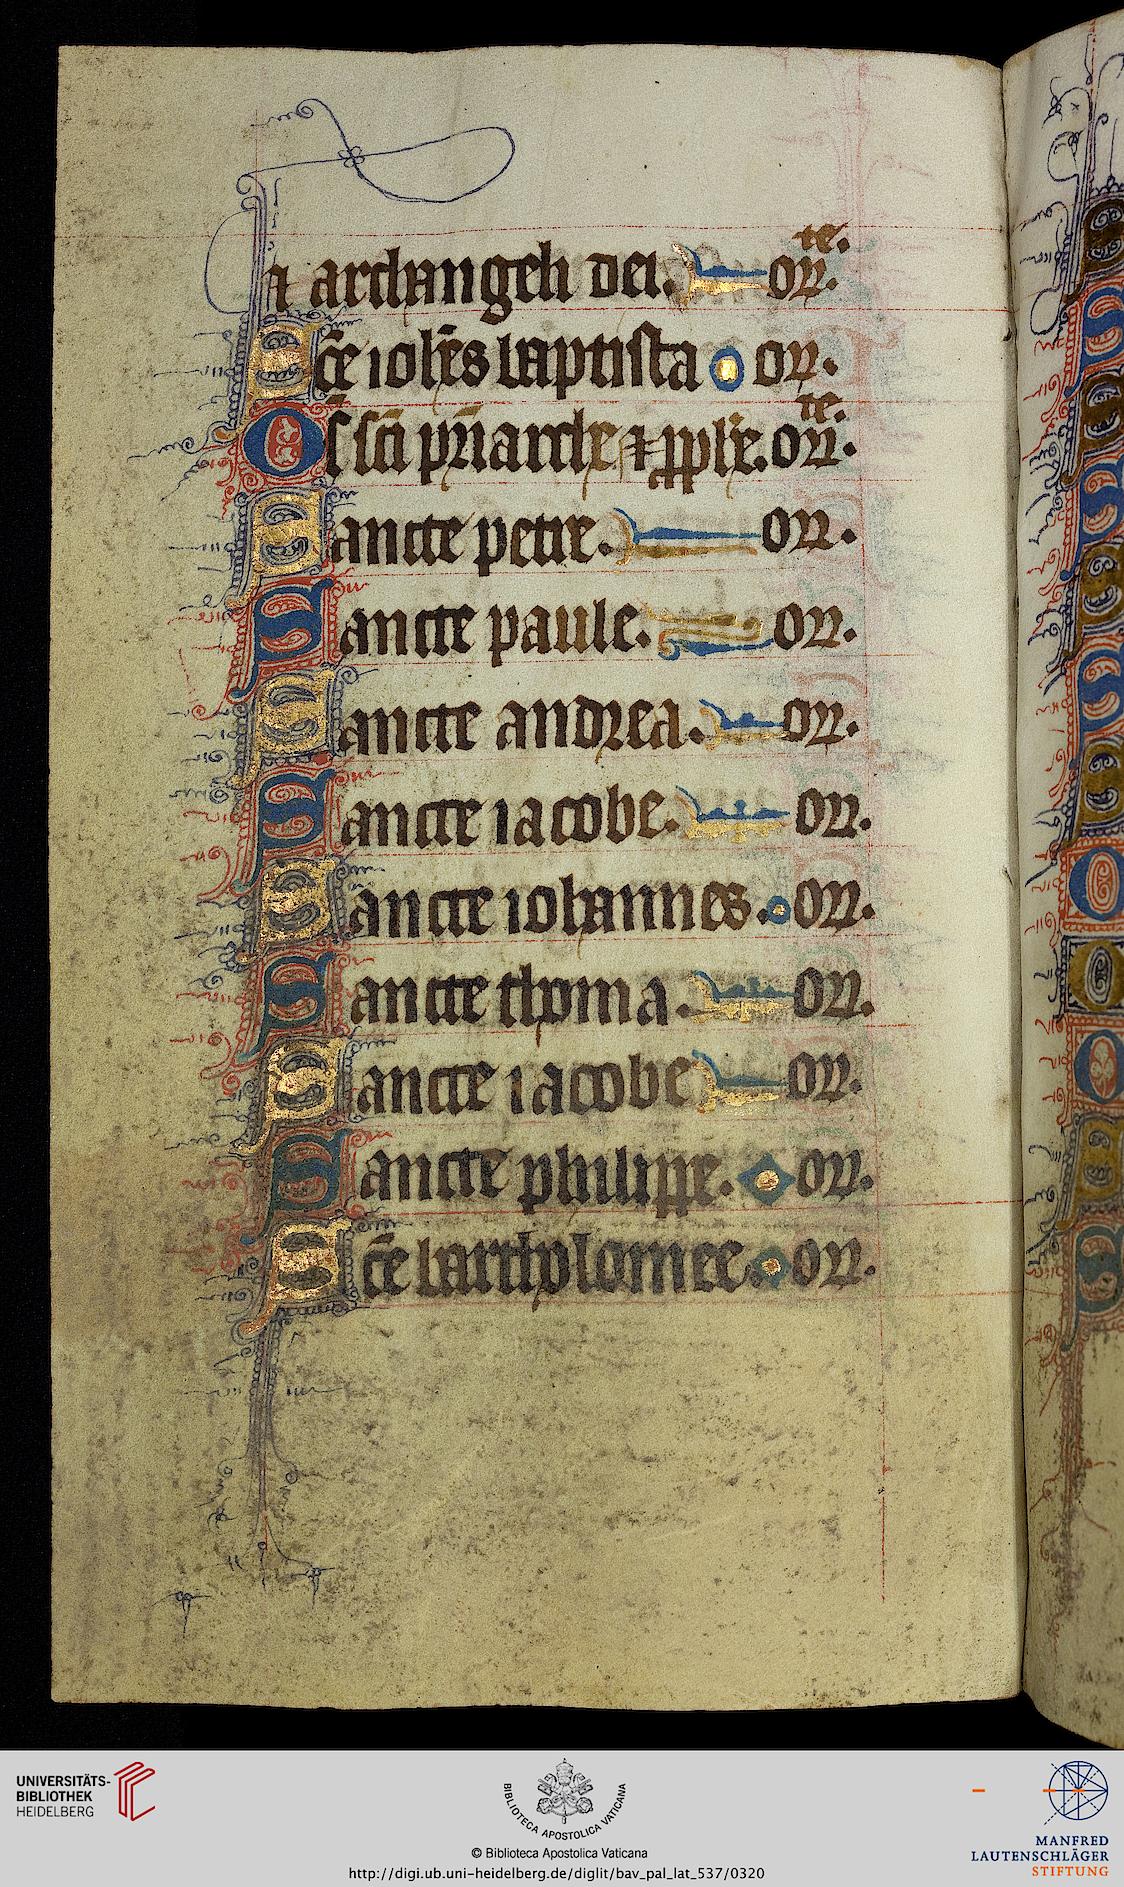 ⁊ archangeli dei. or̄te.
Sc̄e ioh̄es baptista or̄.
Om̄s sc̄i pr̄iarche ⁊ ꝓph̄e. or̄te.
Sancte petre. or̄.
Sancte paule. or̄.
Sancte andrea. or̄.
Sancte iacobe. or̄.
Sancte iohannes. or̄.
Sancte thoma. or̄.
Sancte iacobe or̄.
Sancte philippe. or̄.
Sc̄e bartholomee. or̄.
UNIVERSITÄTS-
BIBLIOTHEK
HEIDELBERG
BIBLIOTECA APOSTOLICA VATICANA
© Biblioteca Apostolica Vaticana
http://digi.ub.uni-heidelberg.de/diglit/bav_pal_lat_537/0320
MANFRED
LAUTENSCHLÄGER
STIFTUNG